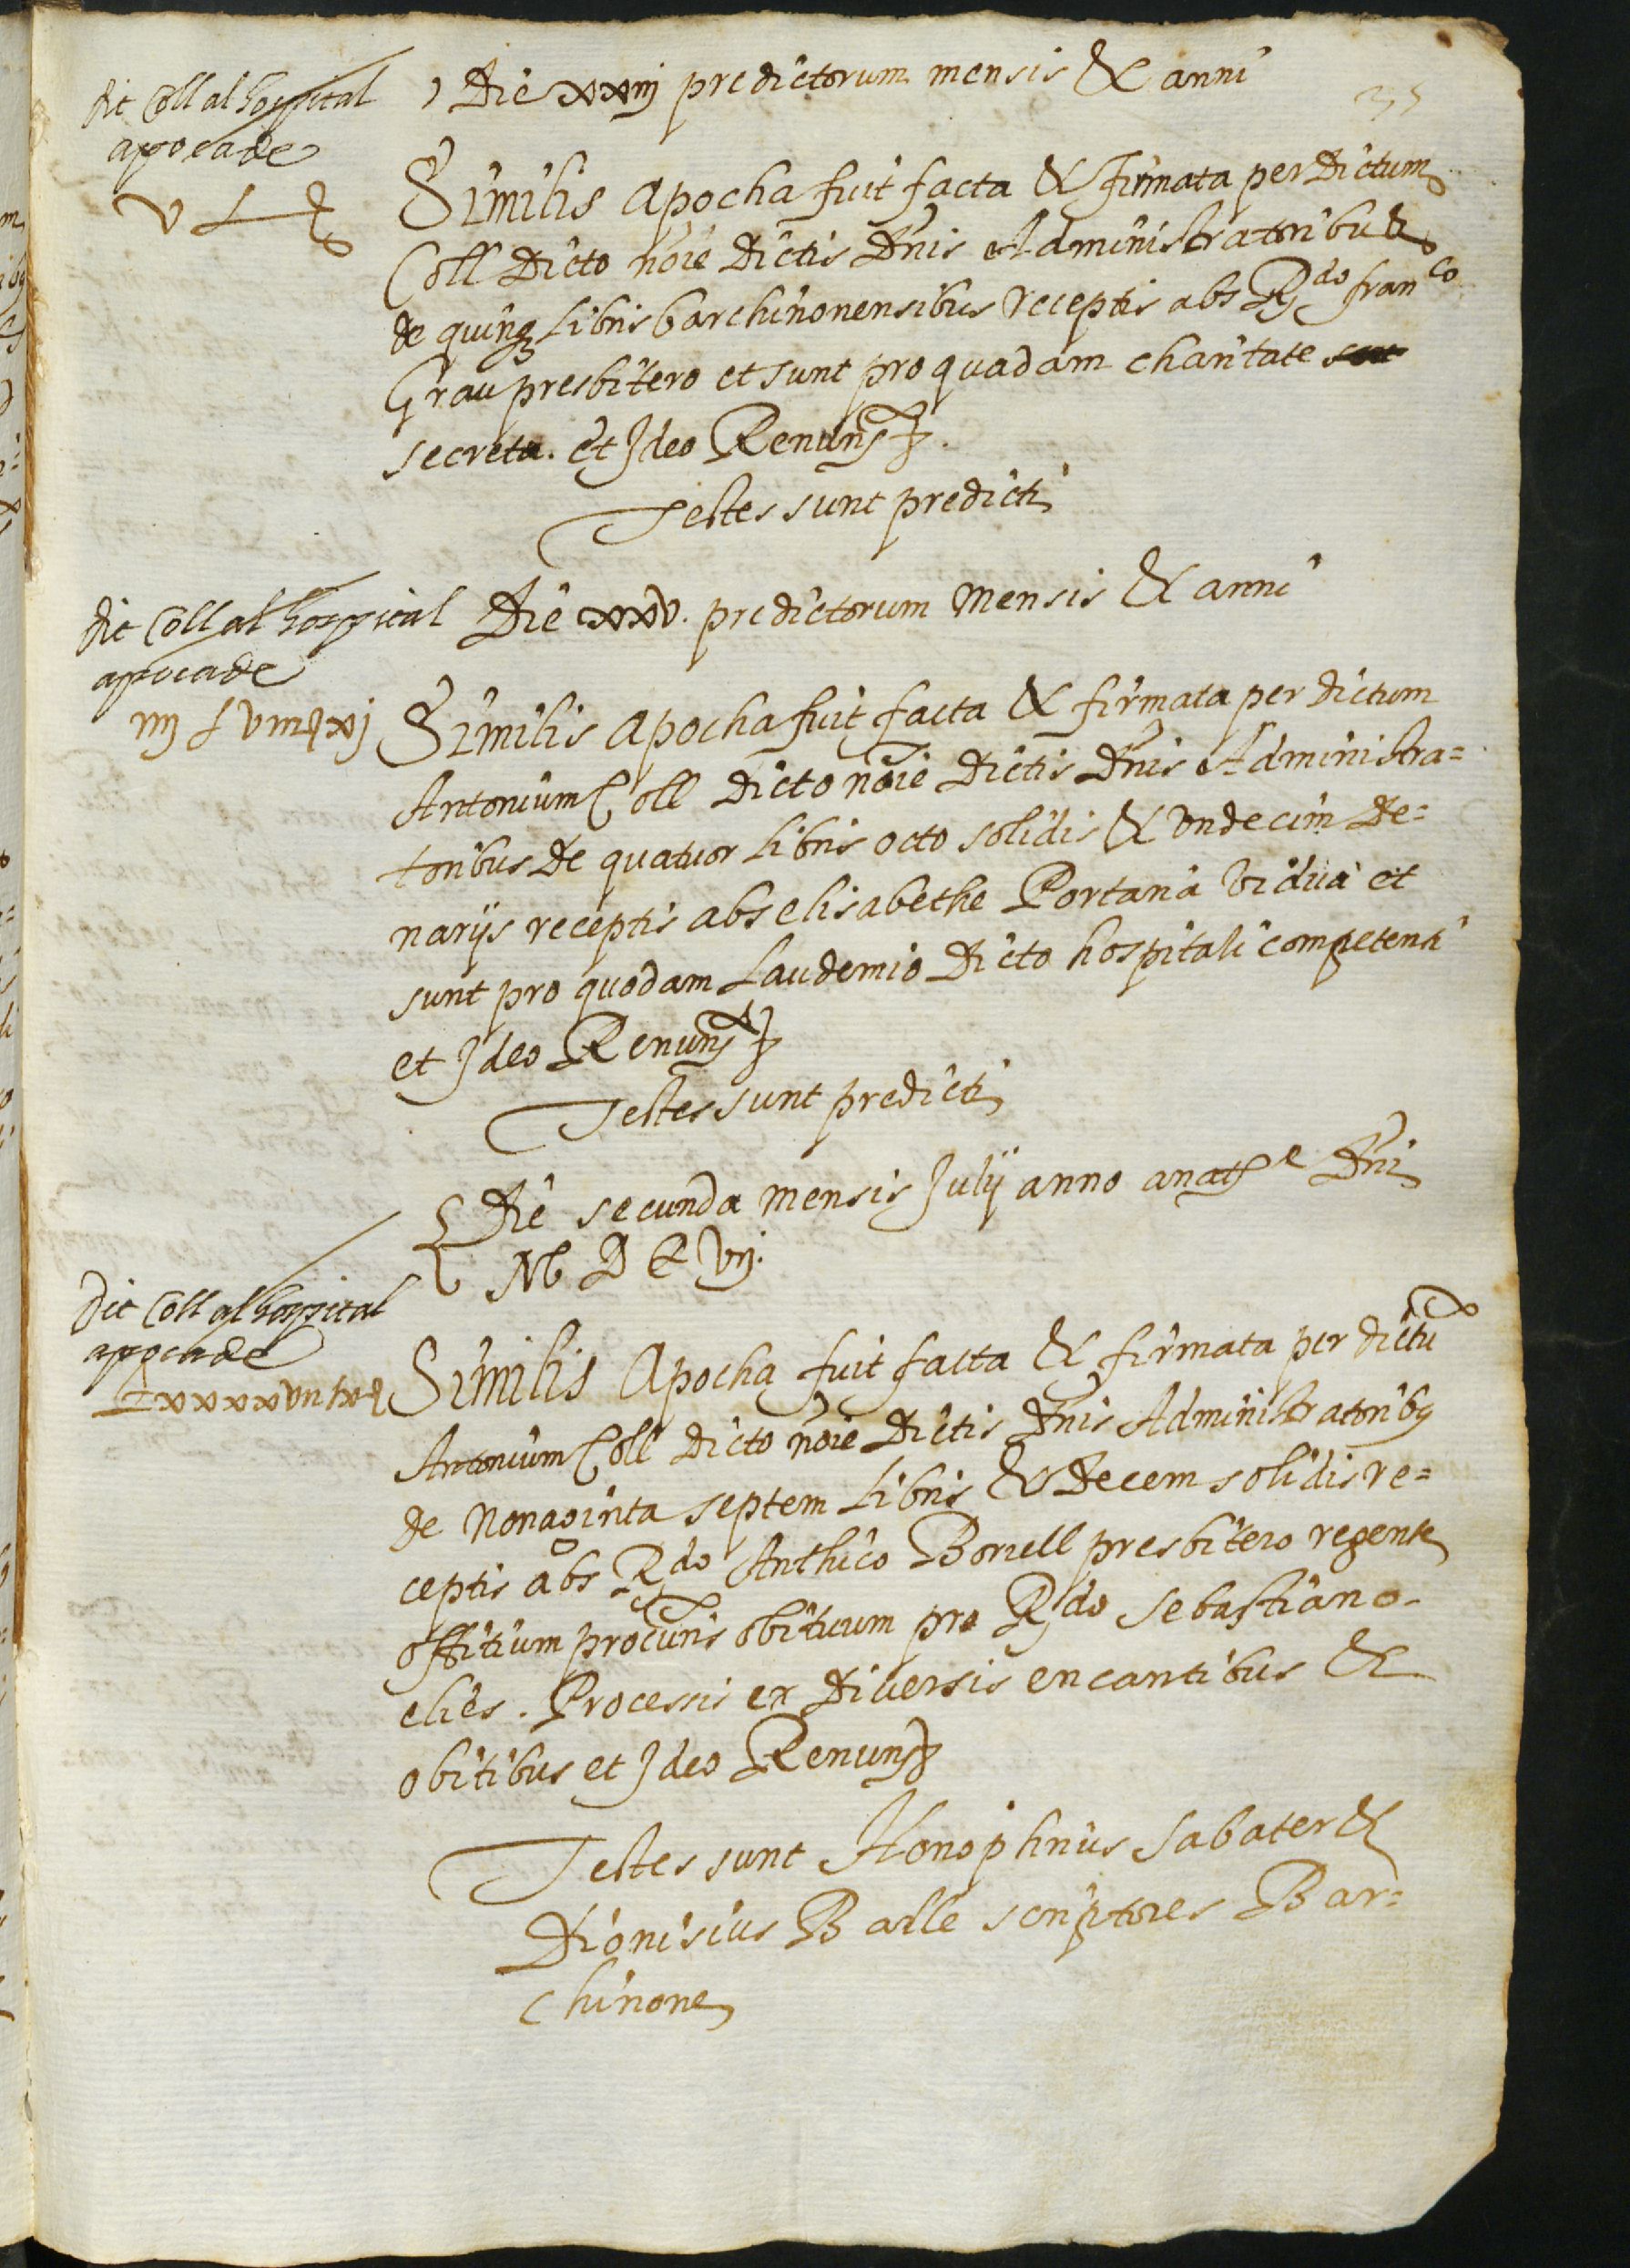 35
Die xxiij predictorum mensis & anni
dit Coll al hospital
apoca de
v L
Similis apocha fuit facta & firmata per dictum
Coll dicto noie dictis dnis Administratoribus
de quinq libris barchinonensibus receptis abs Rdo franco
Grau presbitero et sunt pro quadam charitate
secreta. et Ideo Renuns
Testes sunt predicti
dit Coll al hospital
apoca de
iiij L viiij s xj
Die xxv. predictorum mensis & anni
Similis apocha fuit facta & firmata per dictum
Antonium Coll dicto noie dictis dnis Administra=
toribus de quatuor libris octo solidis & undecim de=
narijs receptis abs elisabethe Portana vidua et
sunt pro quodam Laudemio dicto hospitali competenti
et Ideo Renuns
Testes sunt predicti
Die secunda mensis Julij anno a nate Dni
M D C vij.
dit Coll al hospital
apoca de
Lxxxxvij L x s
Similis apocha fuit facta & firmata per dictu
Antonium Coll dicto noie dictis dnis Administratoribq
de Nonaginta septem libris & decem solidis re=
ceptis abs Rdo Anthico Borrell presbitero regente
offitium procuris obituum pro Rdo Sebastiano
elies. Processis ex diversis encantibus &
obitibus et Ideo Renuns
Testes sunt Honophrius Sabater &
Dionisius Balle scriptores Bar=
chinone